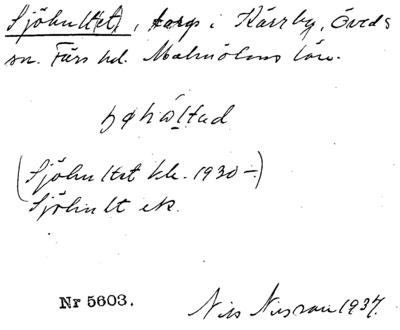 Sjöhultet, torp i Kärrby, Öveds
sn. Färs hd. Malmöhus län.
(Sjöhultet kb. 1930 –)
Sjöhult ek.
Nr 5603.
Nils Nilsson 1937.